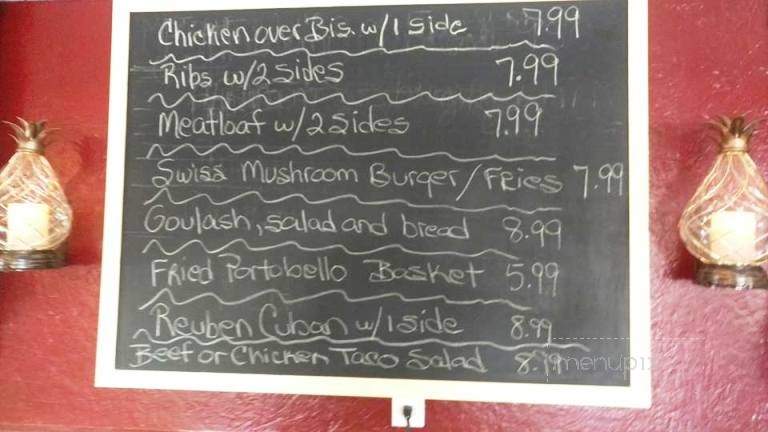 Chicken over Bis. w/1 side 7.99
Ribs w/2 sides 7.99
Meatloaf w/2 sides 7.99
Swiss Mushroom Burger/Fries 7.99
Goulash, salad and bread 8.99
Fried Portobello Basket 5.99
Reuben Cuban w/1 side 8.99
Beef or Chicken Taco Salad 8.99